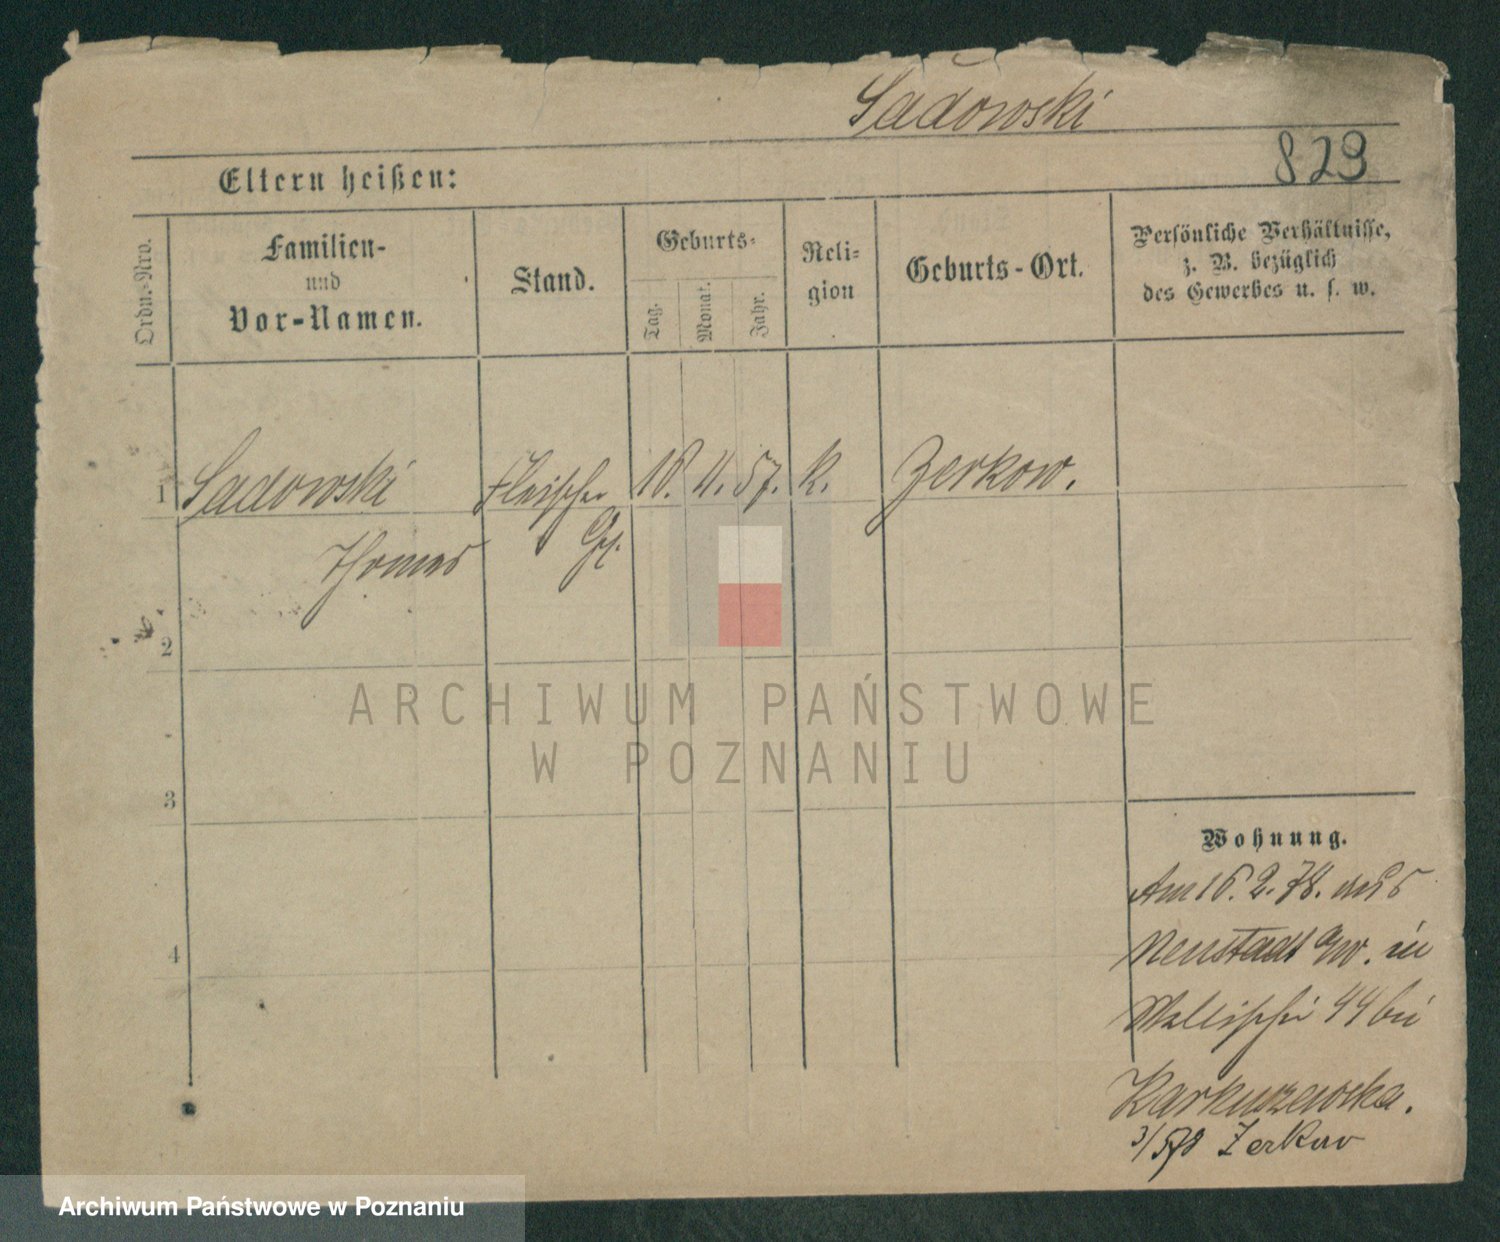 Sadowski
829
Eltern heißen:
Ordn.-Nro.
Familien-
und
Vor-Namen.
Stand.
Geburts-
Tag.
Monat.
Jahr.
Reli-
gion
Geburts-Ort.
Persönliche Verhältnisse,
z. B. bezüglich
des Gewerbes u. s. w.
1 Sadowski Fleischer 18. 11. 57. K. Zerkow.
Thomas Gs.
2
3
4
Wohnung.
Am 16. 2. 78. aus
Neustadt a/W. in
Wallischei 44 bei
3/5 78 Zerkow
ARCHIWUM PAŃSTWOWE
W POZNANIU
Archiwum Państwowe w Poznaniu